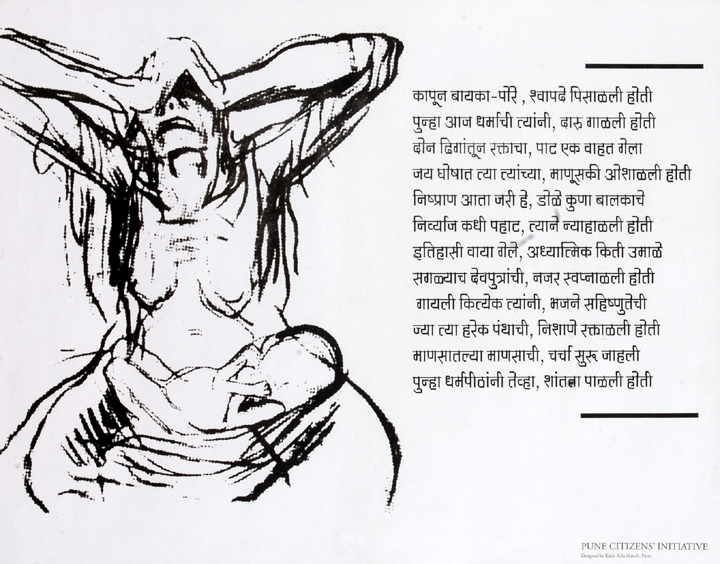 कापून बायका-पोरे , श्वापदे पिसाळली होती
पुन्हा आज धर्माची त्यांनी, दारु गाळली होती
दोन ढिगांतून रक्ताचा, पाट एक वाहत गेला
जय घोषात त्या त्यांच्या, माणूसकी ओशाळली होती
निष्प्राण आता जरी हे, डोळे कुणा बालकाचे
निर्व्याज कधी पहाट, त्याने न्याहाळली होती
इतिहासी वाया गेले, अध्यात्मिक किती उमाळे
सगळ्याच देवपुत्रांची, नजर स्वप्नाळली होती
गायली कित्येक त्यांनी, भजने सहिष्णुतेची
ज्या त्या हरेक पंथाची, निशाणे रक्ताळली होती
माणसातल्या माणसाची, चर्चा सुरू जाहली
पुन्हा धर्मपीठांनी तेव्हा, शांतता पाळली होती
PUNE CITIZENS' INITIATIVE
Designed by Kabir Kala Manch, Pune